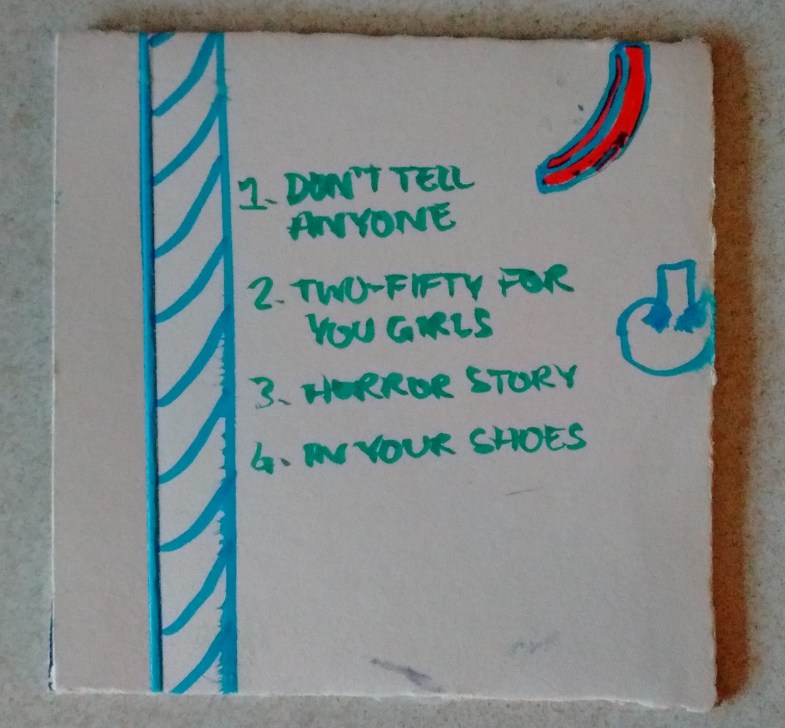 1. DON'T TELL
ANYONE
2. TWO-FIFTY FOR
YOU GIRLS
3. HORROR STORY
4. IN YOUR SHOES